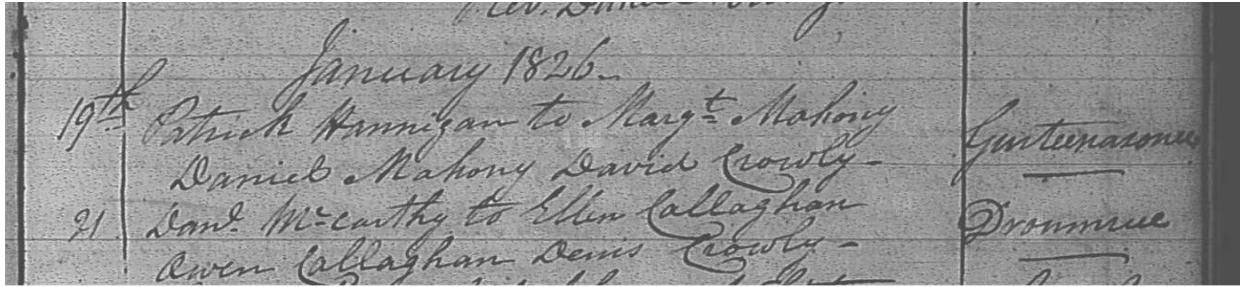 Rev. Daniel
January 1826
19th Patrick Hannigan to Margt Mahony
Daniel Mahony David Crowly - Gurteenasowne
21 Dand. McCarthy to Ellen Callaghan Dromnue
Owen Callaghan Denis Crowly -